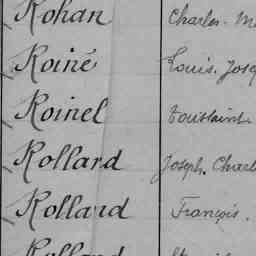 Rohan Charles. M
Roiné Louis. Jose
Roinel Toussaint.
Rollard Joseph. Charl
Rolland François.
Rolland